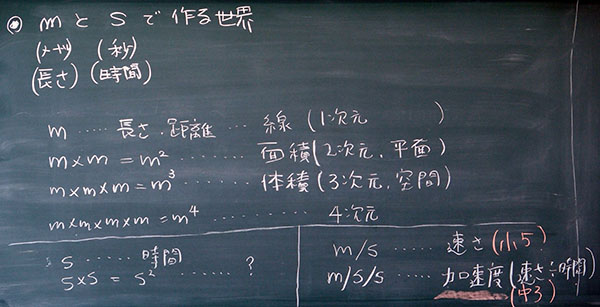 ◉ m と s で作る世界
(メートル) (秒)
(長さ) (時間)
m ‥‥‥ 長さ、距離 ‥‥ 線 (1次元 )
m×m = m² ‥‥‥‥ 面積 (2次元、平面)
m×m×m = m³ ‥‥‥‥ 体積 (3次元、空間)
m×m×m×m = m⁴ ‥‥‥‥‥ 4次元
s ‥‥‥ 時間
s×s = s² ‥‥‥ ?
m/s ‥‥‥ 速さ (小5)
m/s/s ‥‥‥ 加速度 (速さ÷時間)
(中3)